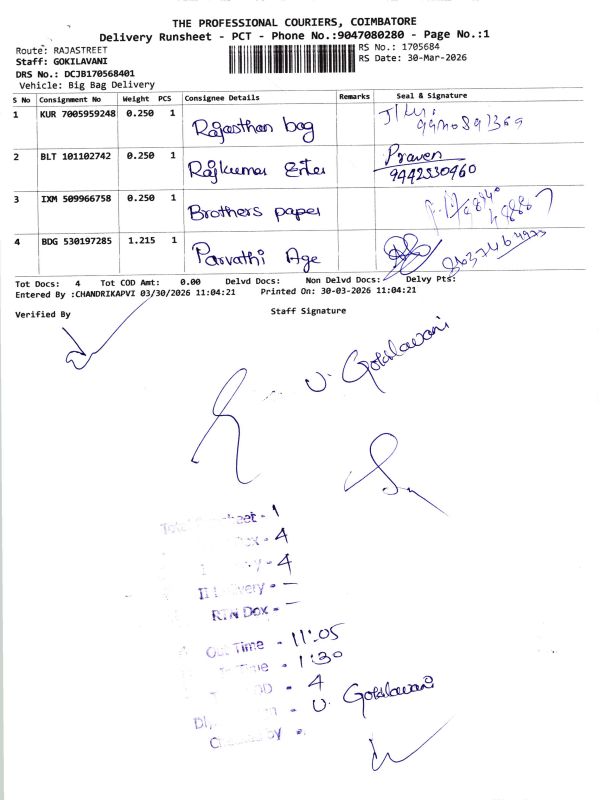 THE PROFESSIONAL COURIERS, COIMBATORE
Delivery Runsheet - PCT - Phone No.:9047080280 - Page No.:1
Route: RAJASTREET
RS No.: 1705684
Staff: GOKILAVANI
RS Date: 30-Mar-2026
DRS No.: DCJB170568401
Vehicle: Big Bag Delivery
S No Consignment No Weight PCS Consignee Details Remarks Seal & Signature
1 KUR 7005959248 0.250 1 Rajasthan bag
2 BLT 101102742 0.250 1 Rajkumar Enter Praven
9442330960
3 IXM 509966758 0.250 1 Brothers paper
4 BDG 530197285 1.215 1 Parvathi Age
Tot Docs: 4 Tot COD Amt: 0.00 Delvd Docs: Non Delvd Docs: Delvy Pts:
Entered By :CHANDRIKAPVI 03/30/2026 11:04:21 Printed On: 30-03-2026 11:04:21
Verified By Staff Signature
U. Gokilavani
- 1
- 4
- 4
II Delivery - —
RTN Dox - —
Out Time - 11:05
Time - 1:30
- 4
- U. Gokilavani